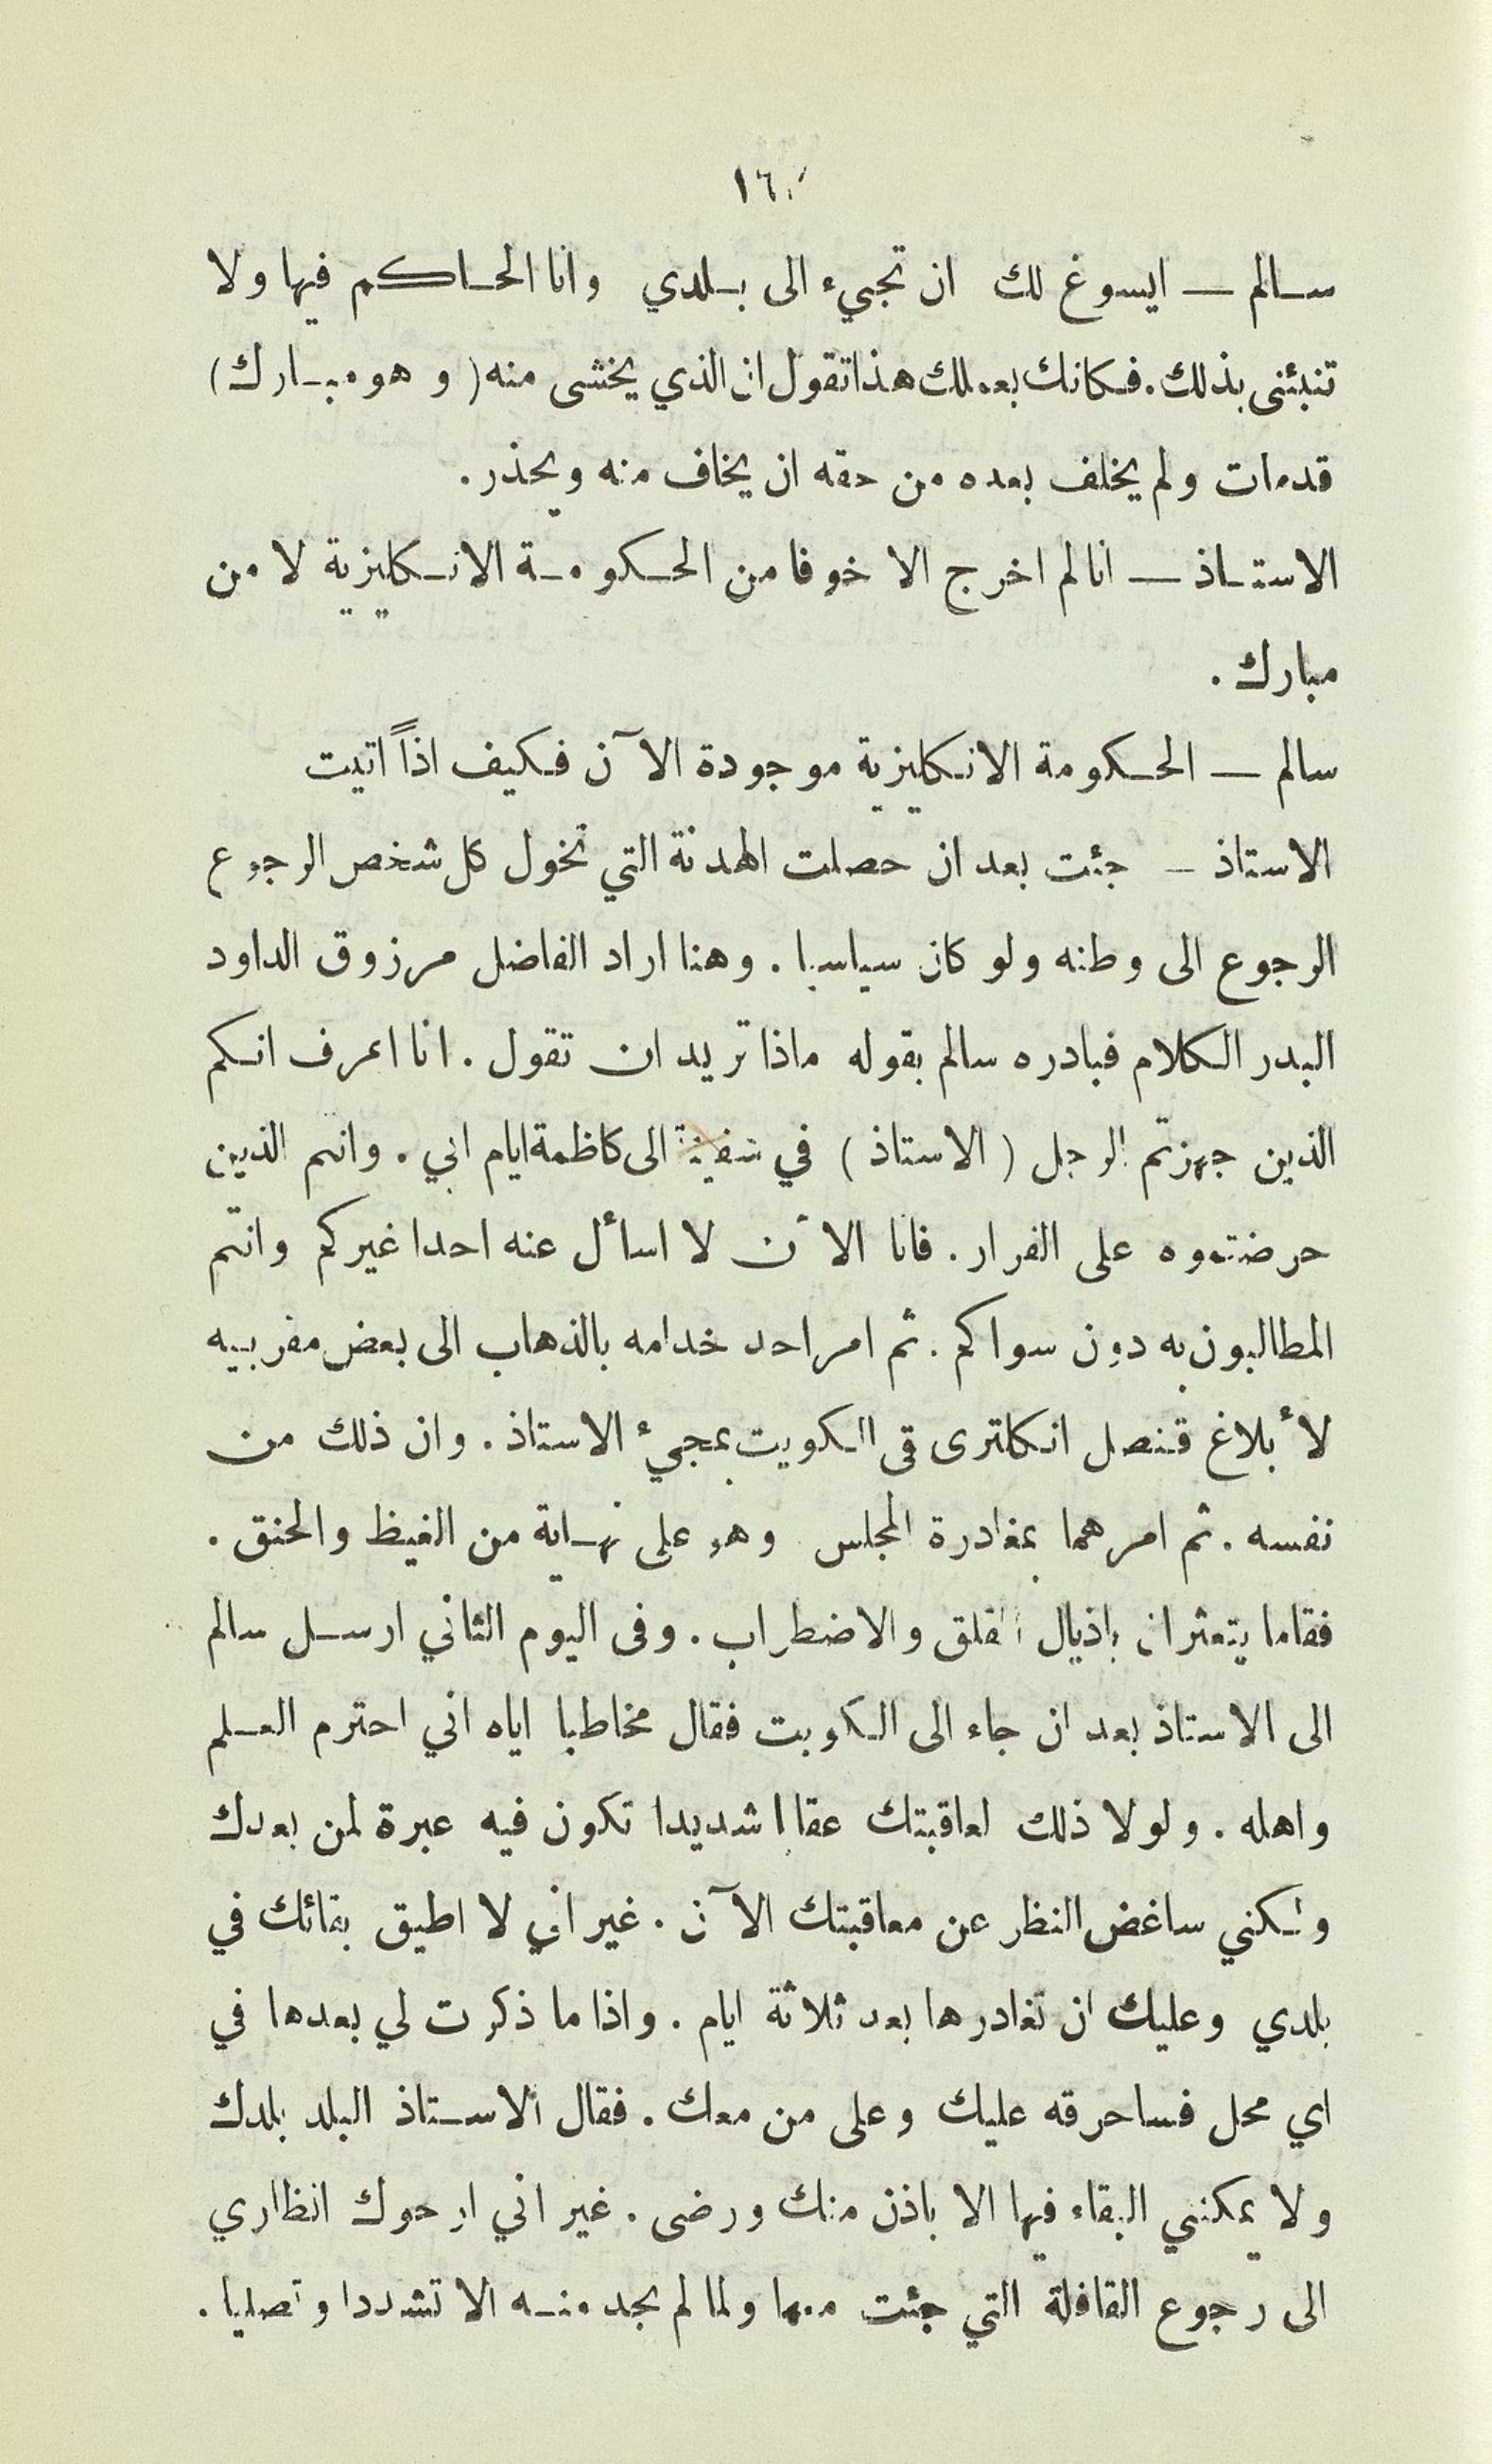 ١٦٠
سالم — ايسوغ لك ان تجيء الى بلدي وانا الحاكم فيها ولا
تنبئنى بذلك. فكانك بعملك هذا تقول ان الذي يخشى منه (وهو مبارك)
قدمات ولم يخلف بعده من حقه ان يخاف منه ويحذر.
الاستاذ — انا لم اخرج الا خوفا من الحكومة الانكليزية لا من
مبارك.
سالم — الحكومة الانكليزية موجودة الآن فكيف اذاً اتيت
الاستاذ – جئت بعد ان حصلت الهدنة التي تخول كل شخص الرجوع
الرجوع الى وطنه ولو كان سياسيا. وهنا اراد الفاضل مرزوق الداود
البدر الكلام فبادره سالم بقوله ماذا تريد ان تقول. انا اعرف انكم
الذين جهزتم الرجل (الاستاذ) في سفينة الى كاظمة ايام ابي. وانتم الذين
حرضتموه على الفرار. فانا الآن لا اسأل عنه احدا غيركم وانتم
المطالبون به دون سواكم. ثم امر احد خدامه بالذهاب الى بعض مقربيه
لأبلاغ قنصل انكلترى قى الكويت بمجيء الاستاذ. وان ذلك من
نفسه. ثم امرهما بمغادرة المجلس وهو على نهاية من الغيظ والحنق.
فقاما يتعثران باذيال القلق والاضطراب. وفى اليوم الثاني ارسل سالم
الى الاستاذ بعد ان جاء الى الكويت فقال مخاطبا اياه اني احترم العلم
واهله. ولولا ذلك لعاقبتك عقابا شديدا تكون فيه عبرة لمن بعدك
ولكنني ساغض النظر عن معاقبتك الآن. غير اني لا اطيق بقائك في
بلدي وعليك ان تغادرها بعد ثلاثة ايام. واذا ما ذكرت لي بعدها في
اي محل فساحرقه عليك وعلى من معك. فقال الاستاذ البلد بلدك
ولا يمكنني البقاء فيها الا باذن منك ورضى. غير اني ارجوك انظاري
الى رجوع القافلة التي جئت معها ولما لم يجد منه الا تشددا وتصلبا.